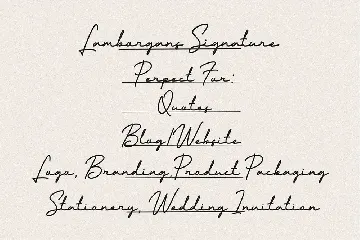 Lambargans Signature
Perpect Fur:
Quotes
Blog/Website
Logo, Branding,Product Packaging
Stationery, Wedding Invitation